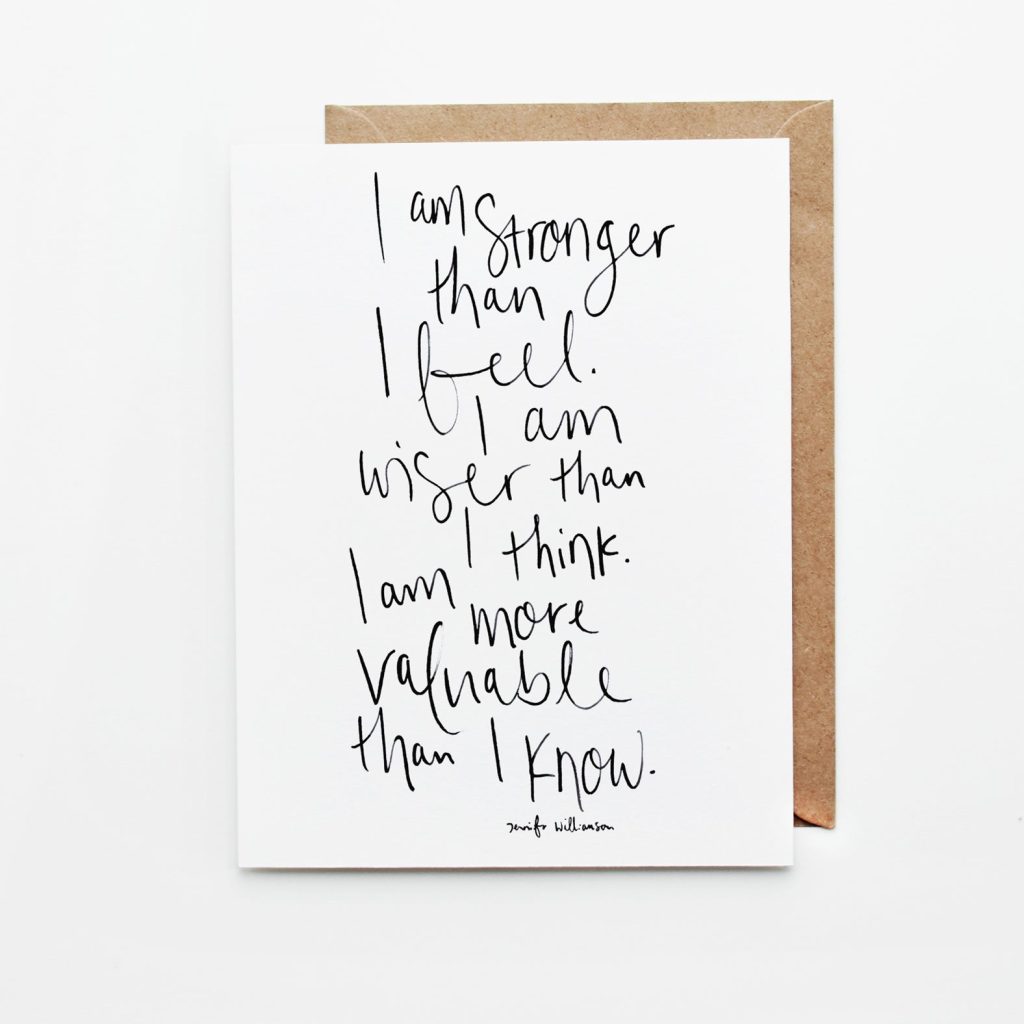 I am stronger
than
I feel.
I am
wiser than
I think.
I am more
valuable
than I know.
Jennifer Williamson